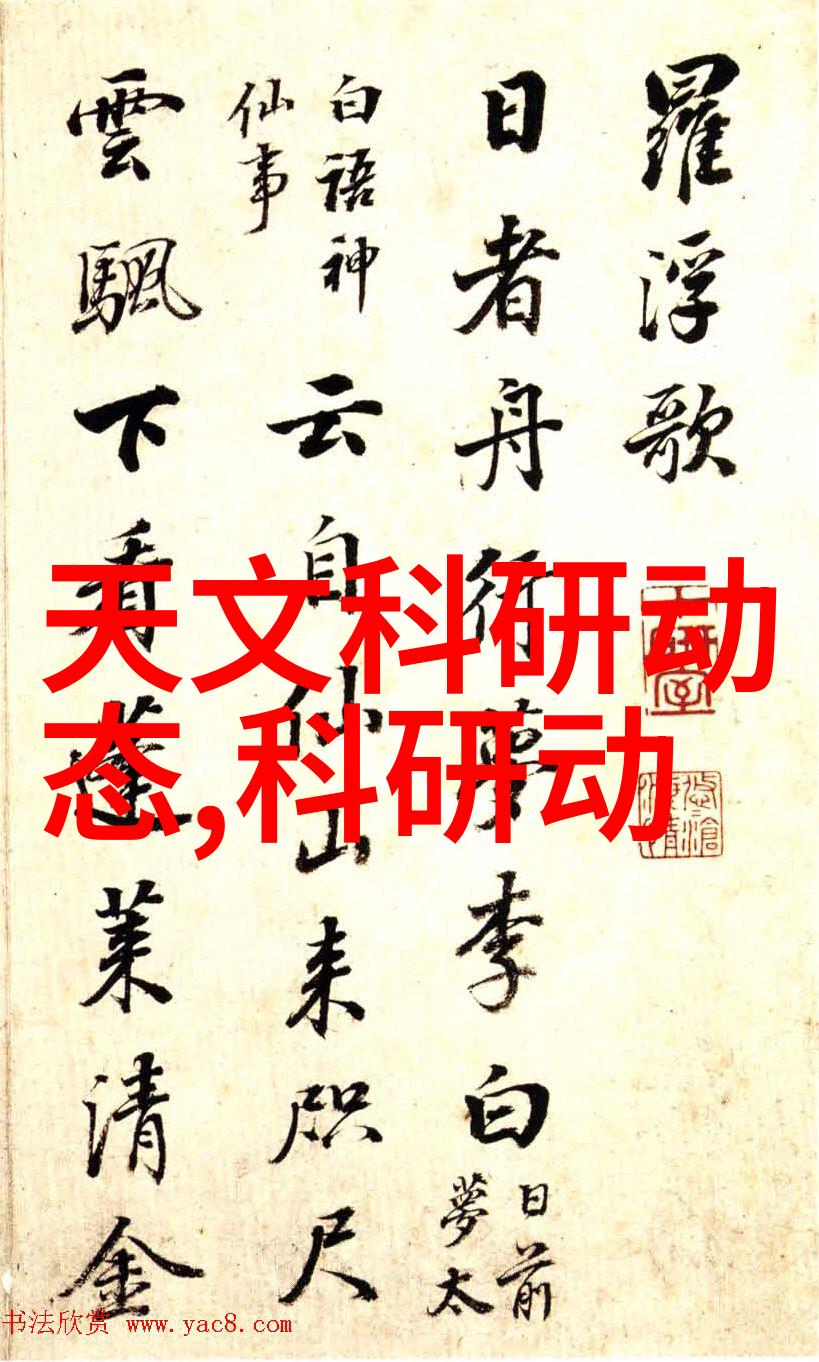 羅浮歌
日者舟行夢李白日前夢太
白語神仙事云自仙山来咫尺
雲颿下看蓬莱清金
天文科研动
态,科研动
书法欣赏 www.yac8.com